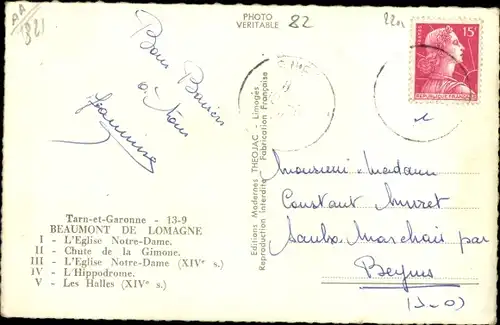 AA
821
PHOTO
VERITABLE
82
220
15F
POSTES
REPUBLIQUE FRANÇAISE
Bons Baisers
à tous
Jeannine
Editions Modernes THEOJAC - Limoges
Reproduction Interdite - Fabrication Française
Monsieur Madam
Constant
par
(S-O)
Tarn-et-Garonne - 13-9
BEAUMONT DE LOMAGNE
I - L'Eglise Notre-Dame.
II - Chute de la Gimone.
III - L'Eglise Notre-Dame (XIVe s.)
IV - L'Hippodrome.
V - Les Halles (XIVe s.)